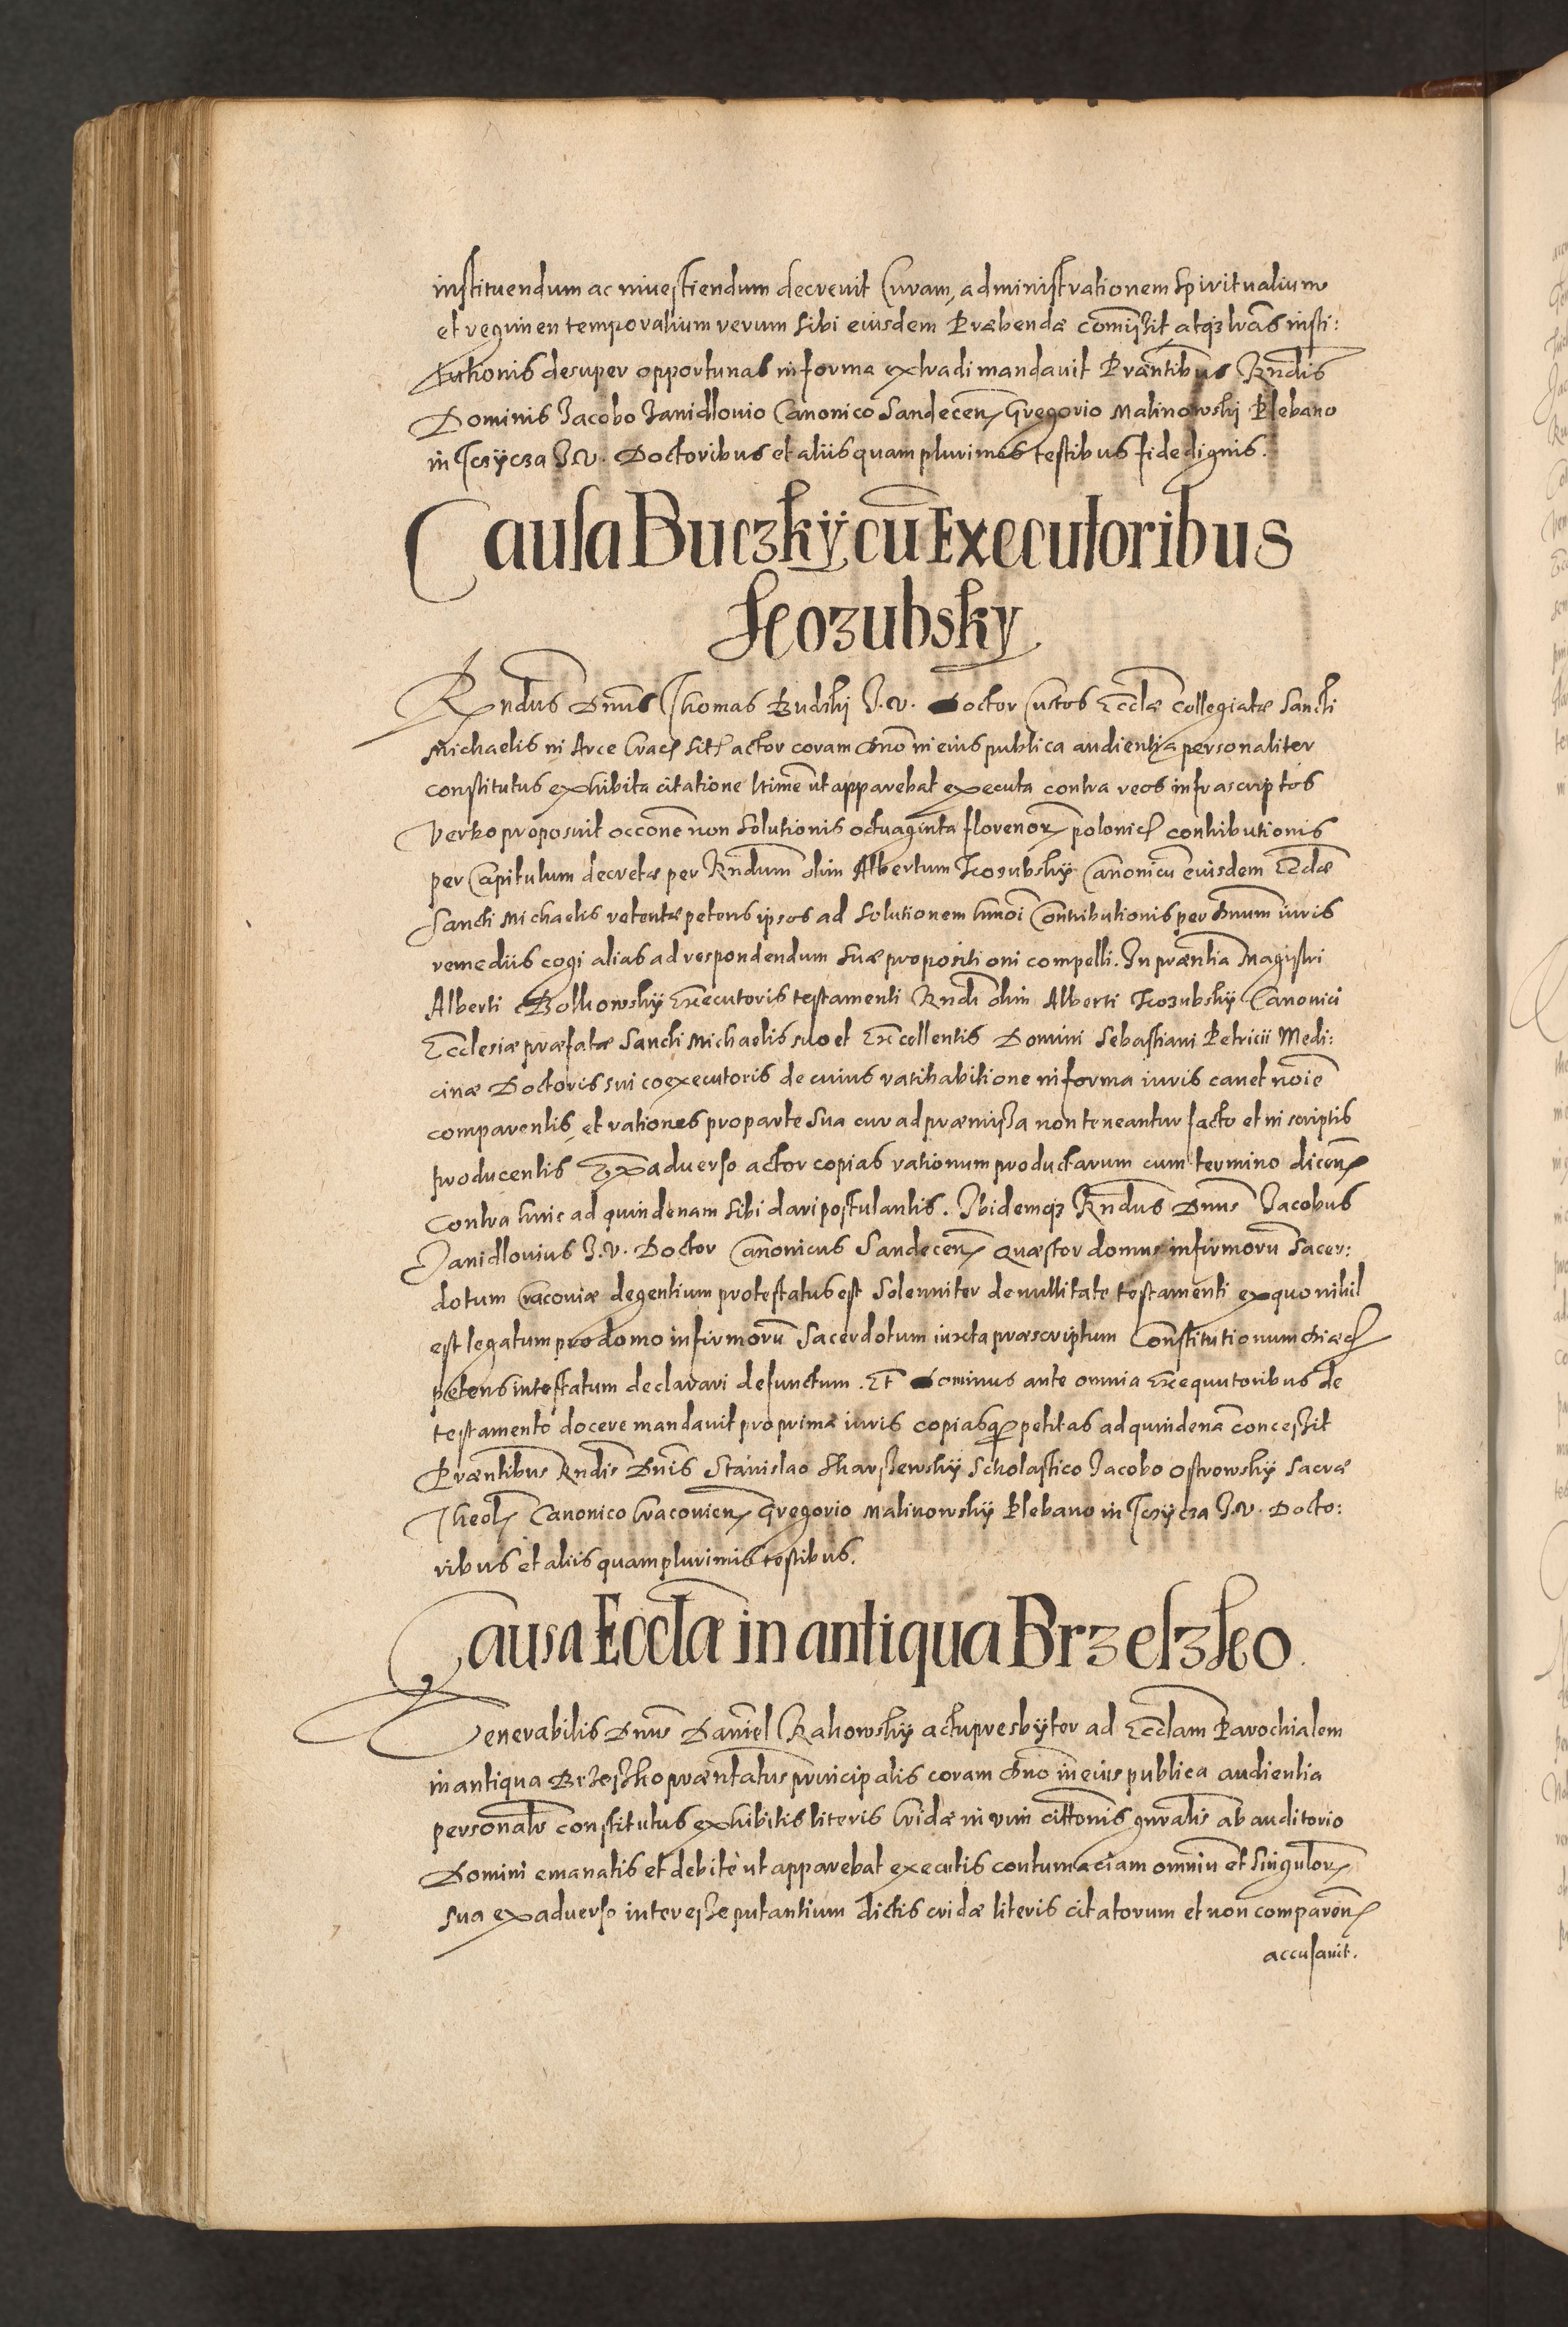 instituendum ac inuestiendum decreuit Curam, administrationem Spiritualium
et regimen temporalium rerum sibi eiusdem Præbendæ comisit atq3 lrãs insti:
tutionis desuper opportunas in forma extradi mandauit Præntibus Rndis
Dominis Jacobo Janidlouio Canonico Sandecen Gregorio Malinowski Plebano
in J. V. Doctoribus et aliis quam plurimis testibus fide dignis.
Causa Buczkÿ cũ Executoribus
Kozubsky
Rndus Dnus Thomas J. V. Doctor Custos Ecclæ Collegiatæ Sancti
Michaelis in Arce Crac actor coram dno in eius publica audientia personaliter
constitutus exhibita citatione ltime ut apparebat executa contra reos infrascriptos
Verbo proposuit occone non solutionis octuaginta florenor polonic contributionis
per Capitulum decretæ per Rndum olim Albertum Kozubskÿ Canonicu eiusdem Ecclæ
Sancti Michaelis retentæ petens ipsos ad solutionem hmoi Contributionis per dnum iuris
remediis cogi alias ad respondendum suæ propositioni compelli. In præntia Magistri
Alberti Executoris testamenti Rndi olim Alberti Kozubskÿ Canonici
Ecclesiæ præfatæ Sancti Michaelis suo et Excellentis Domini Sebastiani Petricii Medi:
cinæ Doctoris sui coexecutoris de cuius ratihabitione in forma iuris cauet noie
comparentis, et rationes pro parte sua cur ad præmissa non teneantur facto et in scriptis
producentis Ex aduerso actor copias rationum productarum cum termino dicen
contra hinc ad quindenam sibi dari postulantis. Ibidemq3 Rndus Dnus Jacobus
Janidlouius J. V. Doctor Canonicus Sandecen Quæstor domus infirmoru Sacer:
dotum Cracouiæ degentium protestatus est solenniter de nullitate testamenti ex quo nihil
est legatum pro domo infirmoru Sacerdotum iuxta præscriptum Constitutionum diæc
petens intestatum declarari defunctum. Et Dominus ante omnia Exequutoribus de
testamento docere mandauit pro prima iuris copiasq petitas ad quindena concessit
Præntibus Rndis Dnis Stanislao Skarszewskÿ Scholastico Jacobo Ostrowskÿ Sacræ
Theol Canonico Cracouien Gregorio Malinowskÿ Plebano in J. V. Docto:
ribus et aliis quam plurimis testibus.
Causa Ecclæ in antiqua Brzeszko.
Venerabilis Dnus Daniel Rakowskÿ actu presbÿter ad Ecclam Parochialem
in antiqua Brzeszko præntatus principalis coram dno in eius publica audientia
personalr constitutus exhibitis literis Cridæ in vim cittonis gnralis ab auditorio
Domini emanatis et debite ut apparebat executis contumaciam omniu et singulor
sua ex aduerso interesse putantium dictis cridæ literis citatorum et non comparen
accusauit.